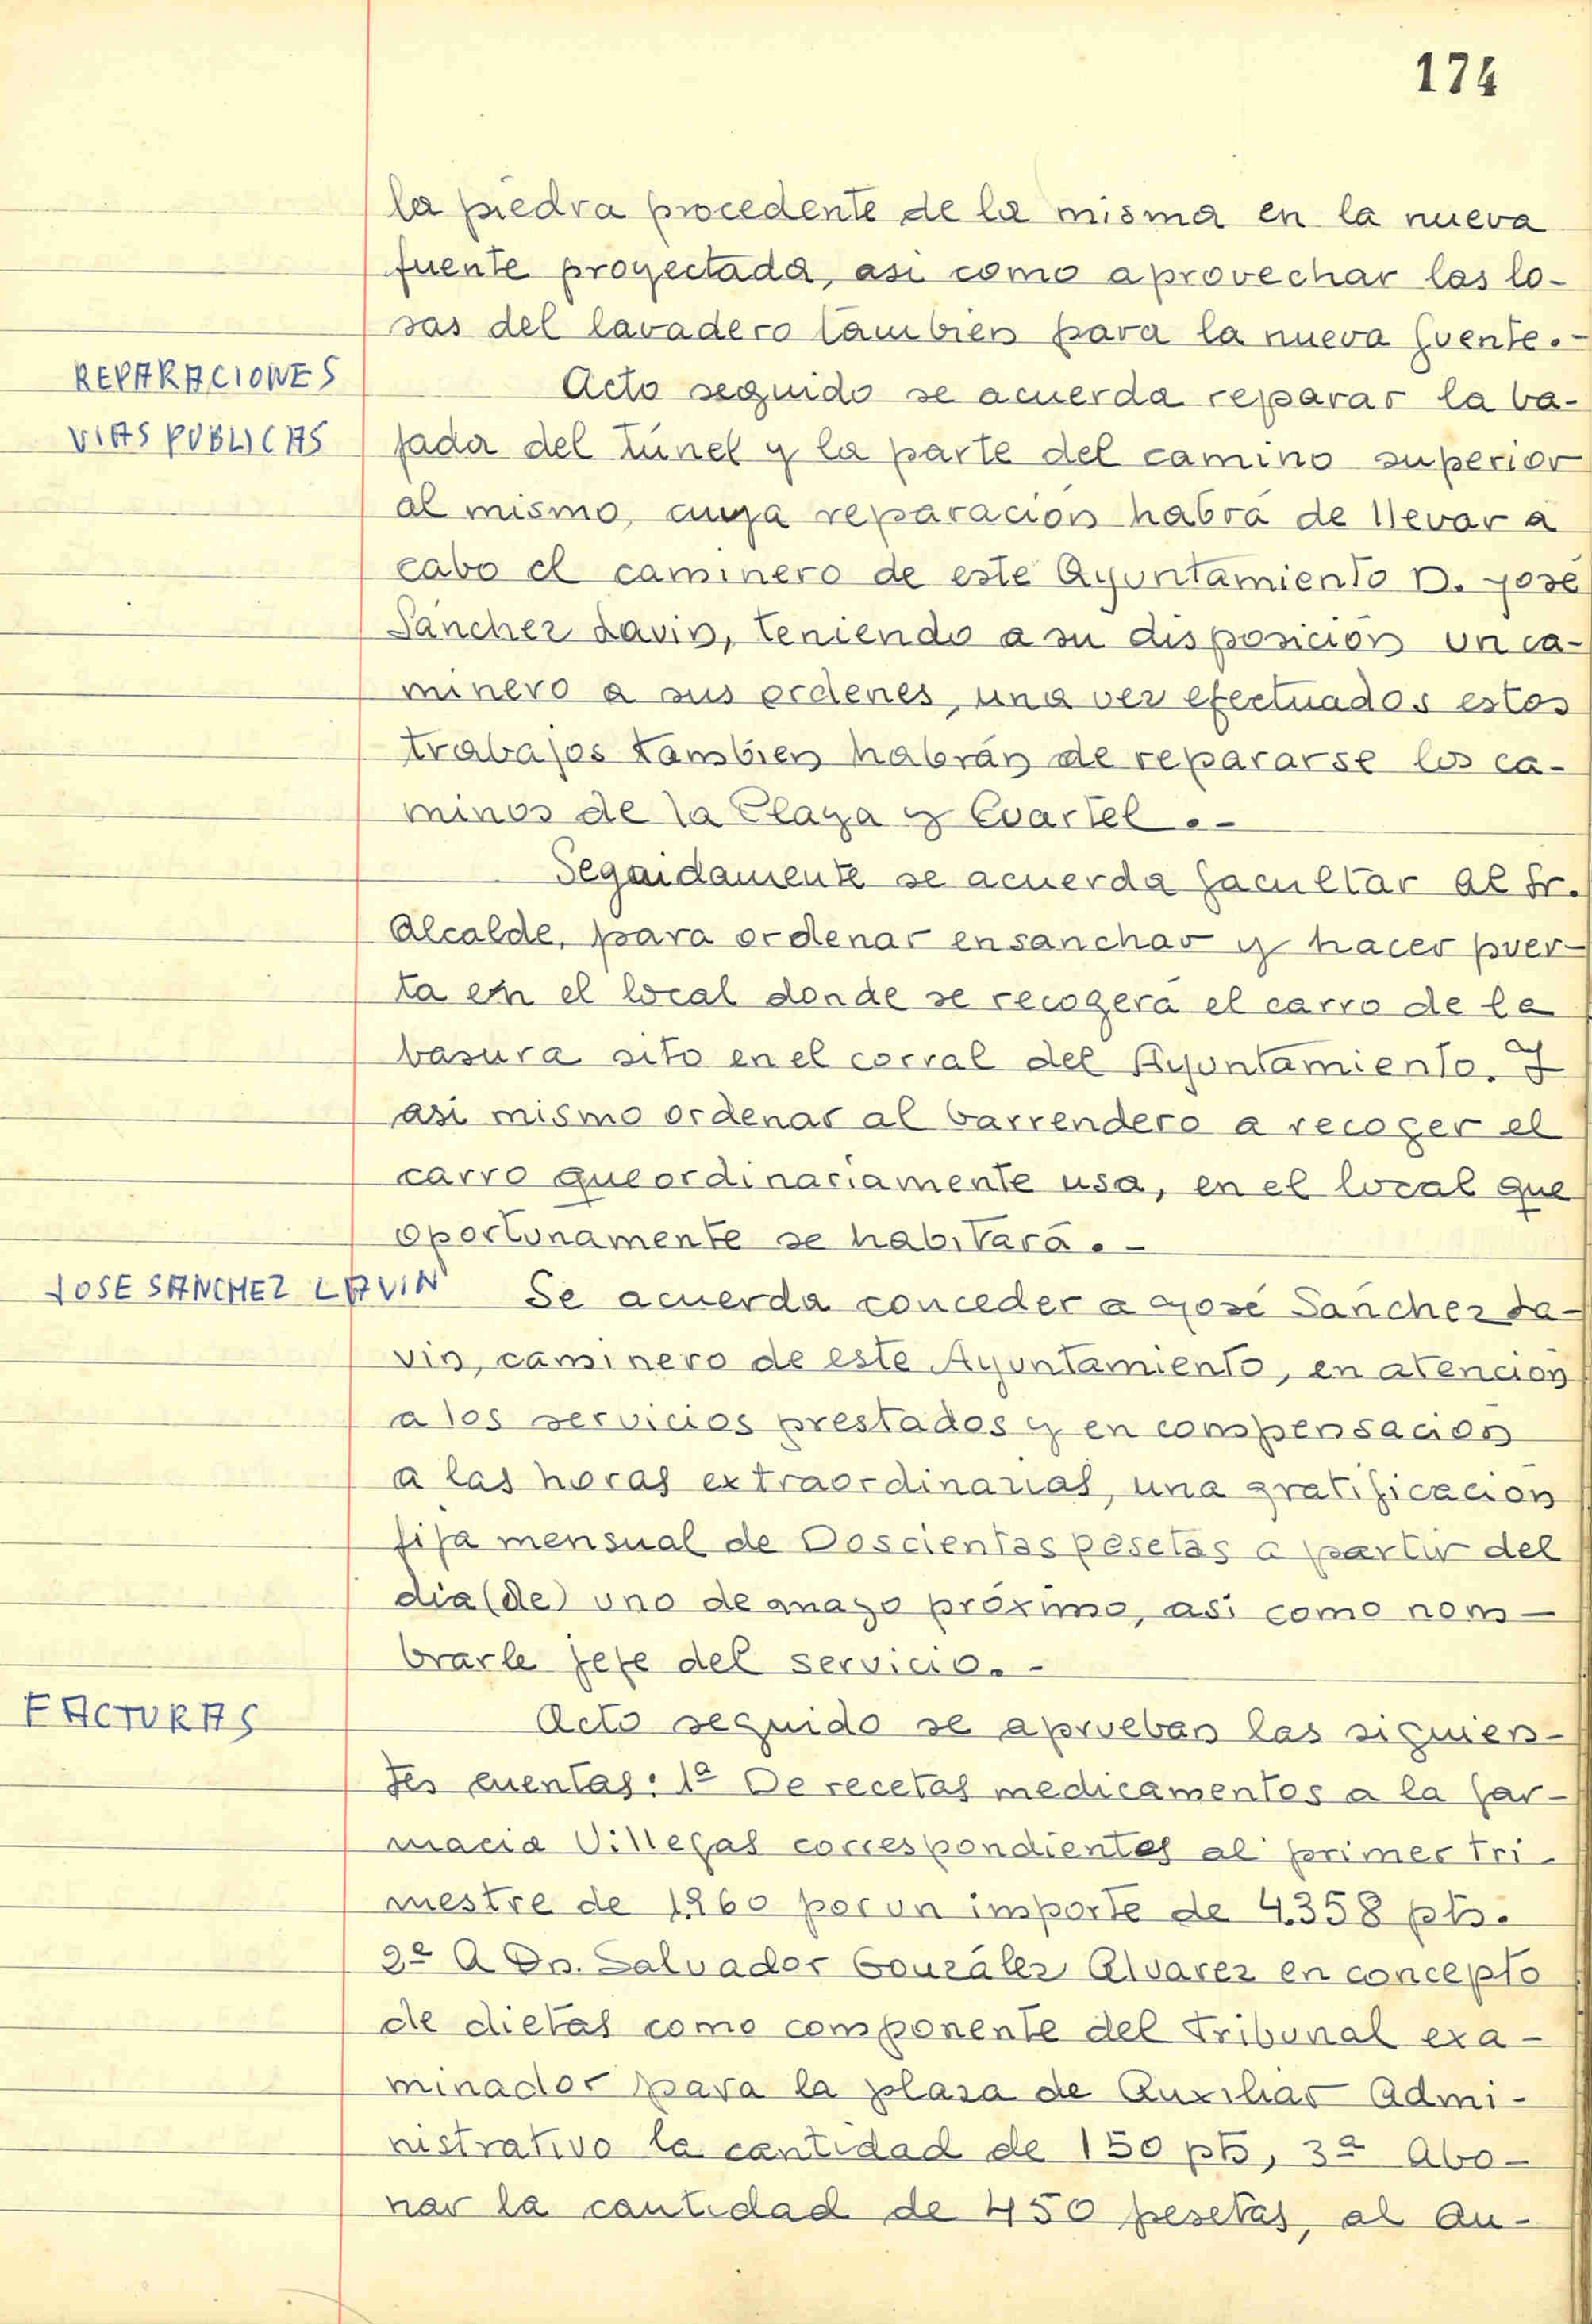 174
la piedra procedente de la misma en la nueva
fuente proyectada, asi como aprovechar las lo-
sas del lavadero tambien para la nueva fuente.-
REPARACIONES
VIAS PUBLICAS
Acto seguido se acuerda reparar la ba-
jada del túnel y la parte del camino superior
al mismo, cuya reparación habrá de llevar a
cabo el caminero de este Ayuntamiento D. José
Sánchez Lavin, teniendo a su disposición un ca-
minero a sus ordenes, una vez efectuados estos
trabajos tambien habrán de repararse los ca-
minos de la Playa y Cuartel.-
Seguidamente se acuerda facultar al Sr.
Alcalde, para ordenar ensanchar y hacer puer-
ta en el local donde se recogerá el carro de la
basura sito en el corral del Ayuntamiento. Y
asi mismo ordenar al barrendero a recoger el
carro que ordinariamente usa, en el local que
oportunamente se habitará.-
JOSE SANCHEZ LAVIN
Se acuerda conceder a José Sánchez La-
vin, caminero de este Ayuntamiento, en atención
a los servicios prestados y en compensación
a las horas extraordinarias, una gratificación
fija mensual de Doscientas pesetas a partir del
dia (de) uno de mayo próximo, asi como nom-
brarle jefe del servicio.-
FACTURAS
Acto seguido se aprueban las siguien-
tes cuentas: 1º De recetas medicamentos a la far-
macia Villegas correspondientes al primer tri-
mestre de 1960 por un importe de 4.358 pts.
2º A Dn. Salvador González Alvarez en concepto
de dietas como componente del Tribunal exa-
minador para la plaza de Auxiliar Admi-
nistrativo la cantidad de 150 pts, 3º Abo-
nar la cantidad de 450 pesetas, al Au-